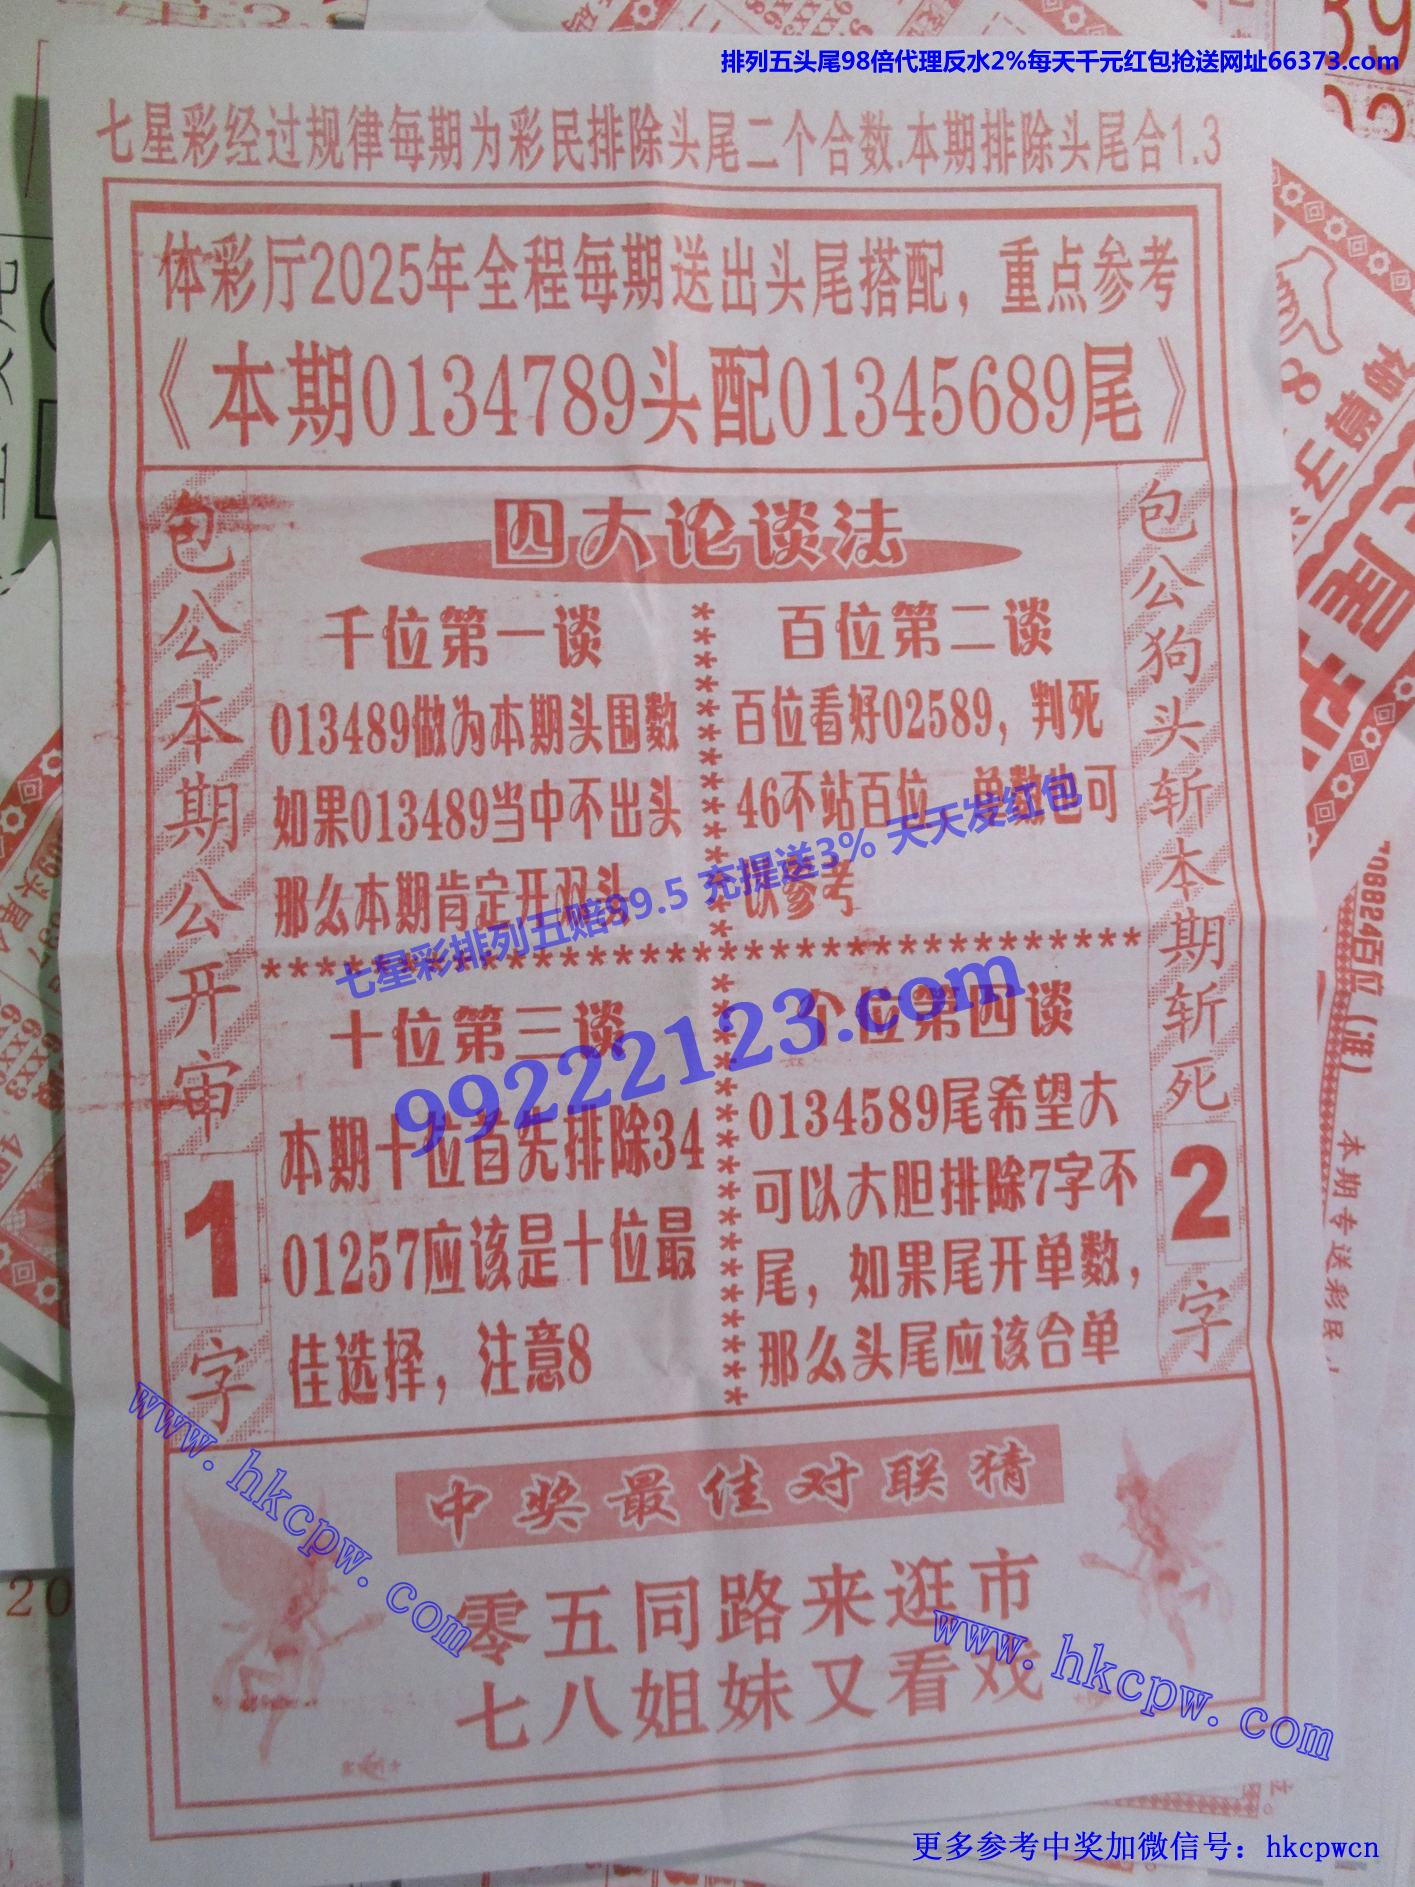 排列五头尾98倍代理反水2%每天千元红包抢送网址66373.com
七星彩经过规律每期为彩民排除头尾二个合数.本期排除头尾合1.3
体彩厅2025年全程每期送出头尾搭配，重点参考
《本期0134789头配01345689尾》
包公本期公开审1字
四大论谈法
千位第一谈
013489做为本期头围数
如果013489当中不出头
那么本期肯定开双头
百位第二谈
百位看好02589，判死
46不站百位，单数也可
以参考
七星彩排列五赔99.5 充提送3% 天天发红包
99222123.com
十位第三谈
本期十位首先排除34
01257应该是十位最
佳选择，注意8
个位第四谈
0134589尾希望大
可以大胆排除7字不
尾，如果尾开单数，
那么头尾应该合单
包公狗头斩本期斩死2字
中奖最佳对联猜
零五同路来逛市
七八姐妹又看戏
www.hkcpw.com
www.hkcpw.com
708824百位（准）
本期专送彩民
更多参考中奖加微信号：hkcpwcn